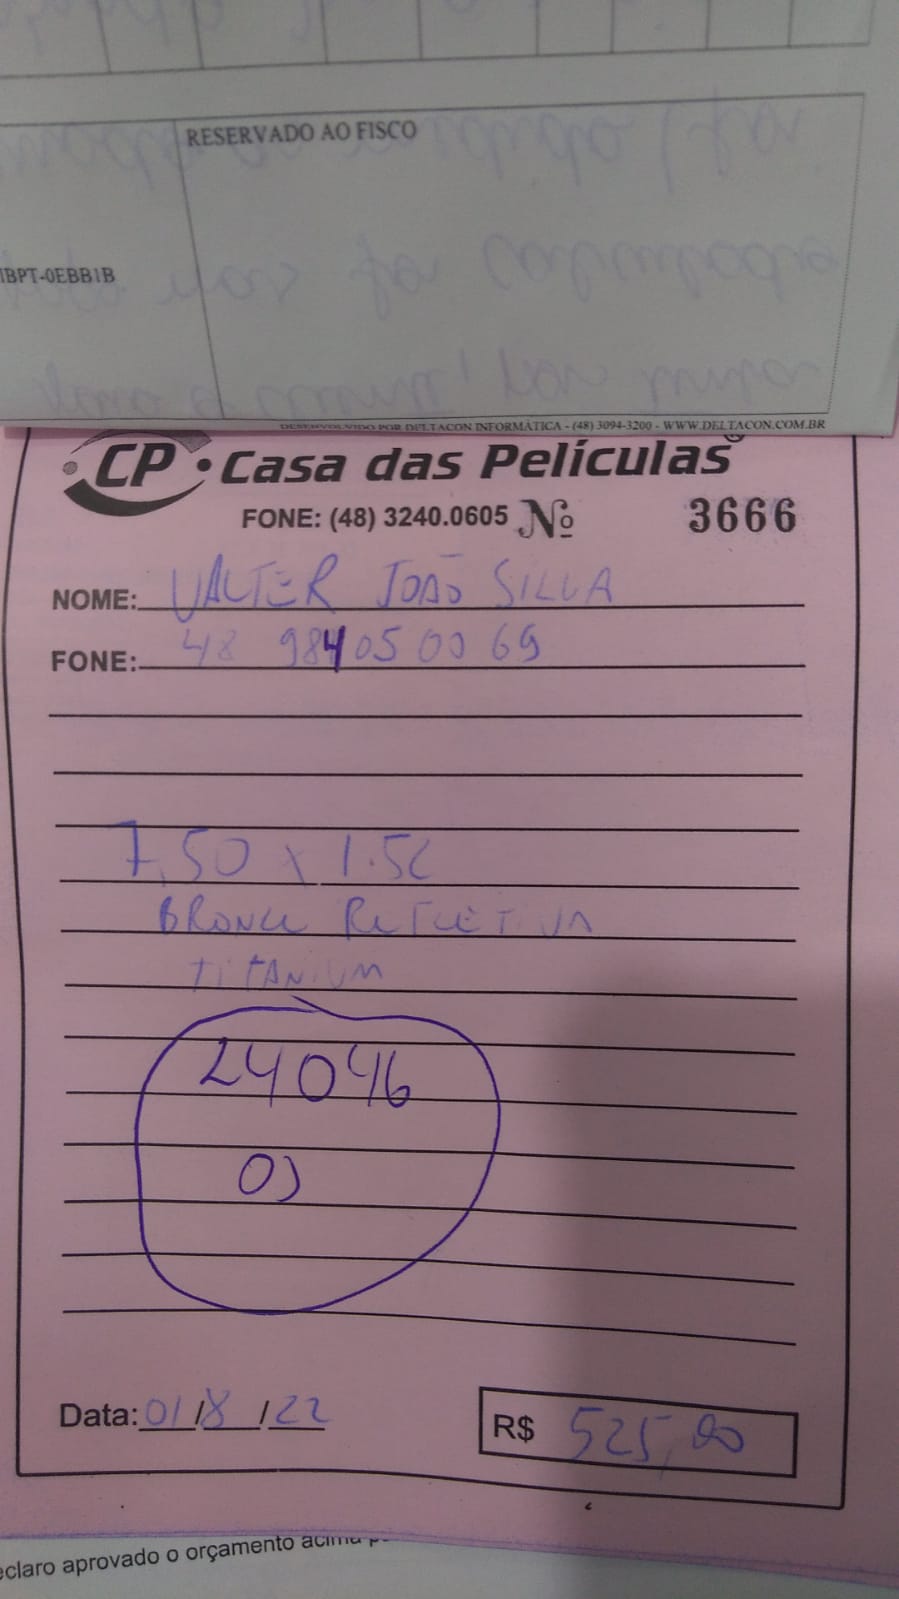 RESERVADO AO FISCO
IBPT-0EBB1B
DESENVOLVIDO POR DELTACON INFORMÁTICA - (48) 3094-3200 - WWW.DELTACON.COM.BR
CP • Casa das Películas
FONE: (48) 3240.0605 Nº 3666
NOME: VALTER JOÃO SILVA
FONE: 48 984 05 00 69
7,50 x 1.52
BRONZE REFLETIVA
TITANIUM
24046
Data: 01/8/22
R$ 525,00
eclaro aprovado o orçamento acima